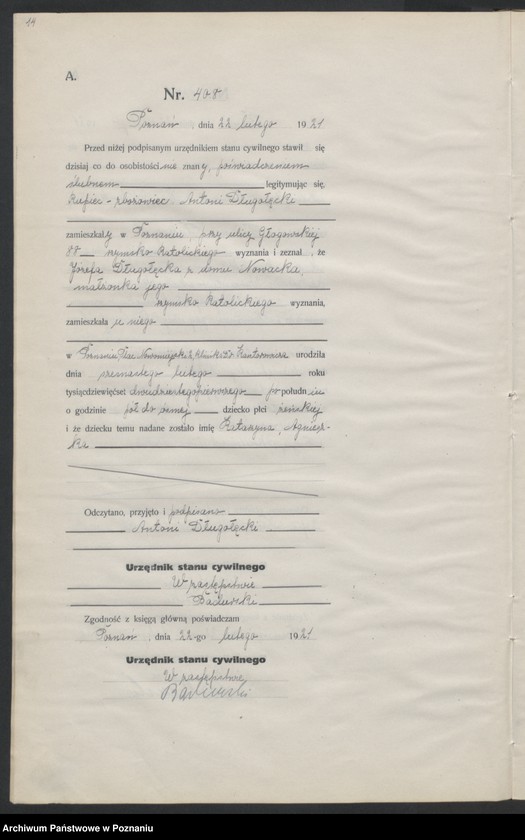 14
A.
Nr. 408
Poznań, dnia 22 lutego 1921
Przed niżej podpisanym urzędnikiem stanu cywilnego stawił się
dzisiaj co do osobistości nie znany, poświadczeniem
ślubnem legitymując się,
kupiec - zbożowiec Antoni Długołęcki
zamieszkały w Poznaniu przy ulicy Głogowskiej
88 rzymsko katolickiego wyznania i zeznał, że
Józefa Długołęcka z domu Nowacka,
małżonka jego
rzymsko katolickiego wyznania,
zamieszkała u niego
w Poznaniu, Plac Nowomiejski, klinika Dr. Kantorowicza urodziła
dnia ósmastego lutego roku
tysiącdziewięćset dwudziestegopierwszego po południu
o godzinie pół do ósmej dziecko płci żeńskiej
i że dziecku temu nadane zostało imię Katarzyna, Agniesz-
ka
Odczytano, przyjęto i podpisano
Antoni Długołęcki
Urzędnik stanu cywilnego
W zastępstwie
Zgodność z księgą główną poświadczam
Poznań, dnia 22-go lutego 1921
Urzędnik stanu cywilnego
W zastępstwie
Archiwum Państwowe w Poznaniu